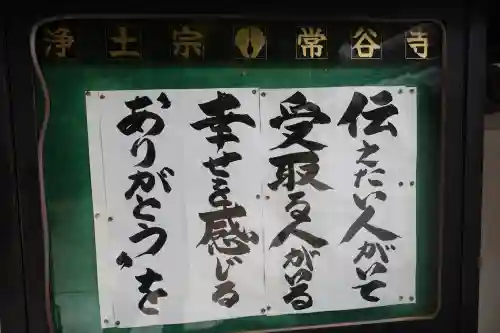 浄土宗 常谷寺
伝えたい人がいて
受取る人がいる
幸せを感じる
ありがとうを